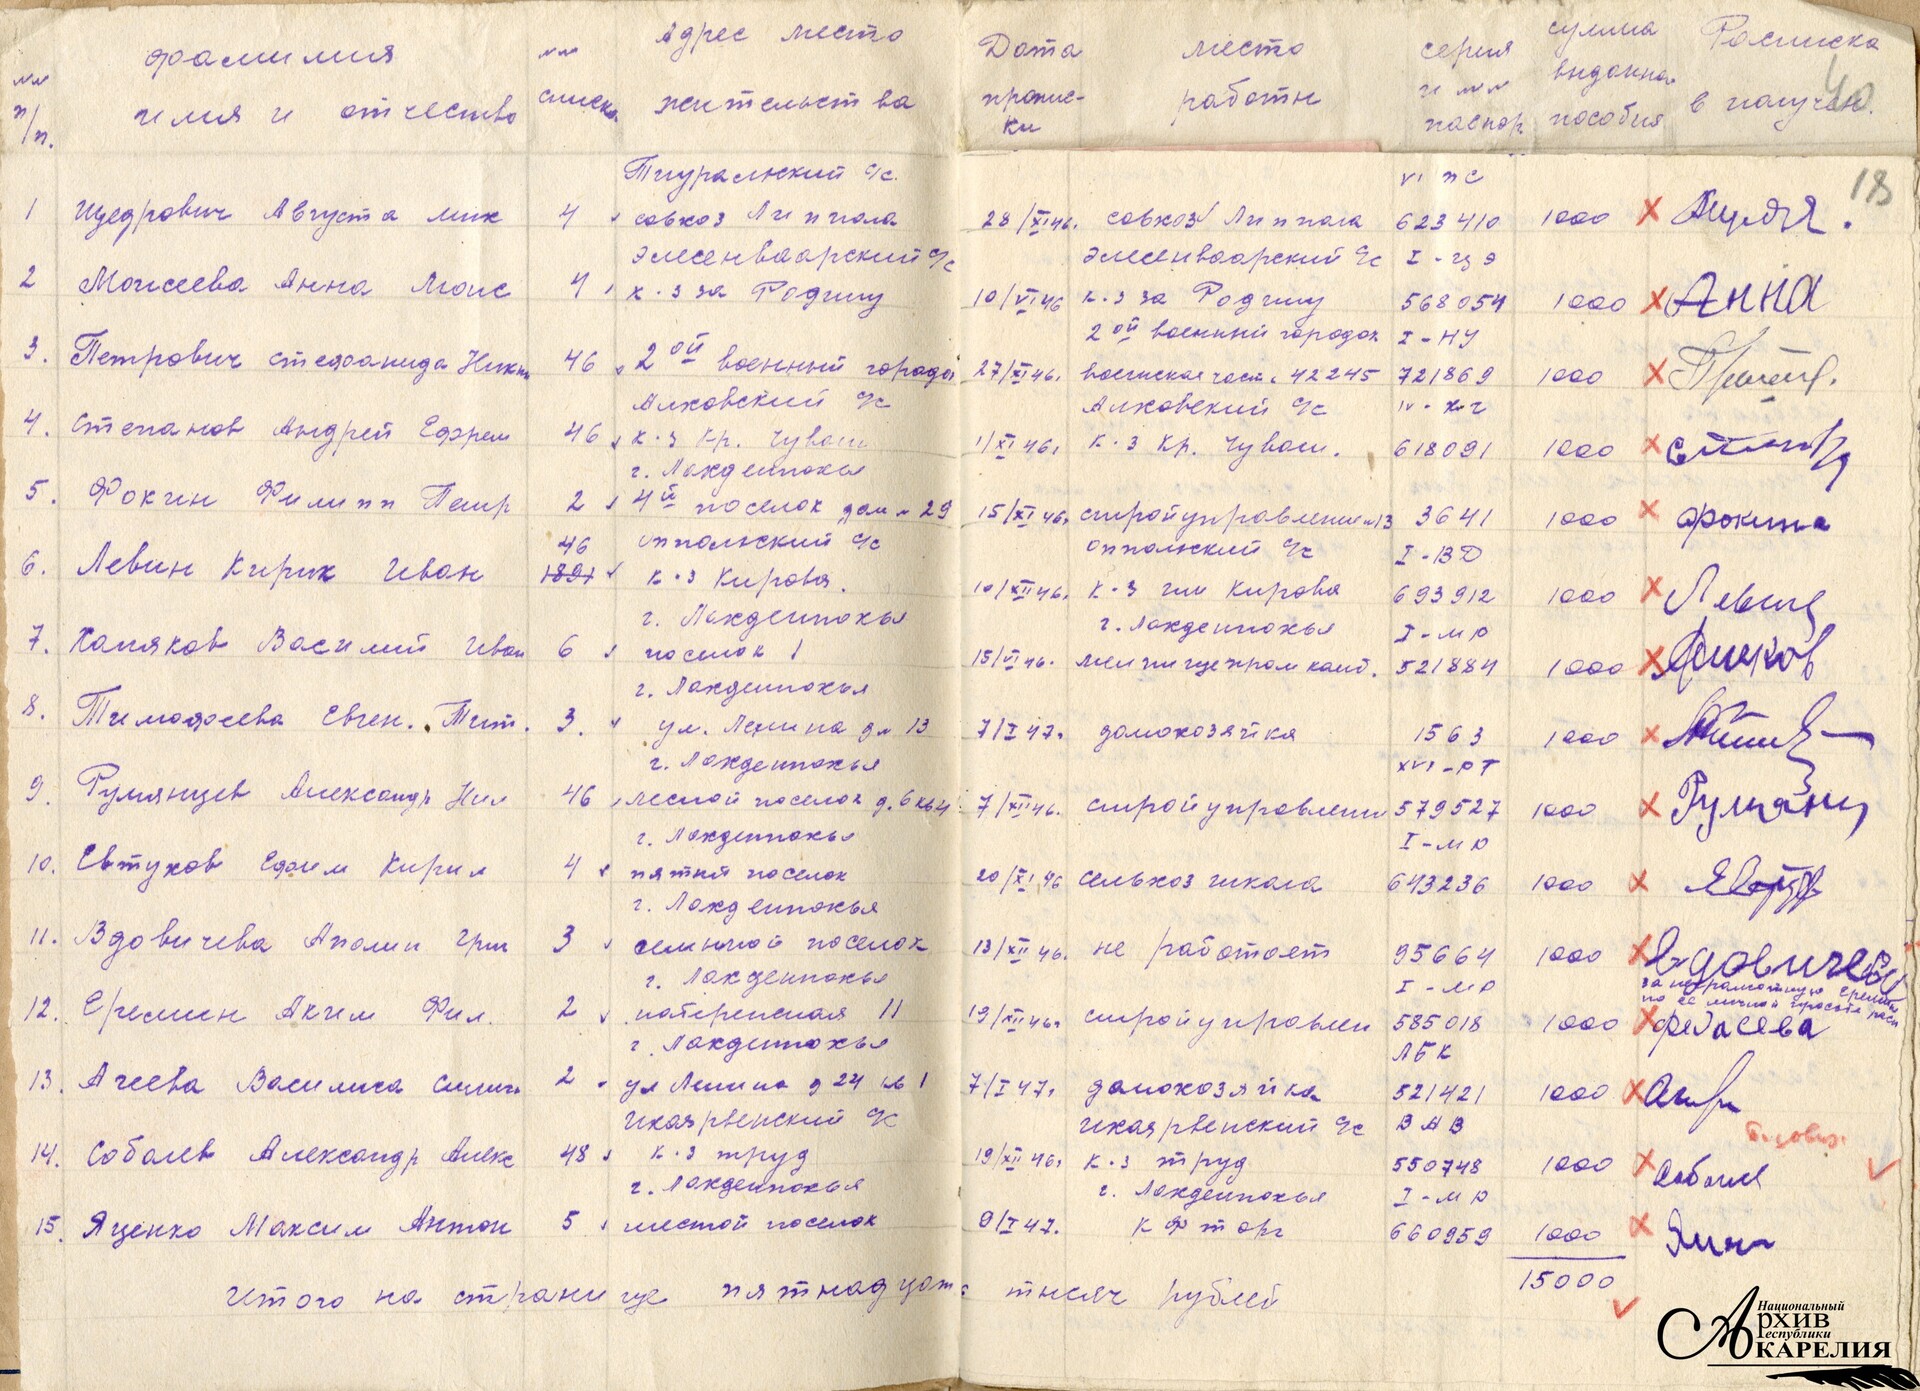 №№ п/п. фамилия имя и отчество №№ списка Адрес место жительства Дата пропис-ки место работы серия и №№ паспор. сумма выдонна пособия Росписка в получен.
40
18
Тиуральский с/с. VI ПС
1 Щедрович Августа Мих 4 совхоз Липпола 28/XI 46. совхоз Липпола 623410 1000
Элисенваарский с/с Элисенваарский с/с I-ЦЭ
2 Моисеева Анна Моис 4 к-з за Родину 10/VI 46 к-з за Родину 568054 1000 Анна
2ой военный городок I-НУ
3. Петрович Стефонида Никит 46 2ой военный городок 27/XI 46. воинская част. 42245 721869 1000
Алховский с/с Алховский с/с IV-ХГ
4. Степанов Андрей Ефрем 46 к-з Кр. Чуваш 1/XI 46. к-з Кр. Чуваш. 618091 1000
г. Лахденпохья
5. Фокин Филипп Петр 2 4й поселок дом 29 15/XI 46. стройуправление 13 3641 1000 Фокина
46 Оппольский с/с Оппольский с/с I-ВД
6. Левин Кирик Иван 1891 к-з Кирова. 10/XII 46. к-з им Кирова 693912 1000 Левин
г. Лахденпохья г. Лахденпохья I-МЮ
7. Хапяков Василий Иван 6 поселок 1 15/VI 46. мелпищепромкомб. 521884 1000
г. Лахденпохья
8. Тимофеева Евген. Тит. 3. ул. Ленина д 13 7/I 47. домохозяйка 1563 1000
г. Лахденпохья XVI-РТ
9. Румянцев Александр Нил 46 лесной поселок д. 6 кв 4 7/XII 46. стройуправлени 579527 1000 Румянц
г. Лахденпохья I-МЮ
10. Евтухов Ефим Кирил 4 пятый поселок 20/XI 46 сельхоз школа 643236 1000
г. Лахденпохья
11. Вдовичева Аполин Гри 3 семиной поселок 13/XII 46. не работает 95664 1000 Вдовичева
г. Лахденпохья I-МЮ за неграмотную
по её личной просьбе расп
12. Еремин Аким Фил. 2 11 19/XII 46. стройуправлен 585018 1000 Федасева
г. Лахденпохья ЛБК
13. Агеева Василиса 2 ул Ленина д 24 кв 1 7/I 47. домохозяйка 521421 1000
Ихаярвенский с/с Ихаярвенский с/с ВАВ
14. Соболев Александр Алекс 48 к-з труд 19/XII 46. к-з труд 550748 1000 Соболев
г. Лахденпохья г. Лахденпохья I-МЮ
15. Яценко Максим Антон 5 шестой поселок 9/I 47. КФ торг 660959 1000
15000
Итого на странице пятнадцать тысяч рублей
Национальный
Архив
Республики
Карелия